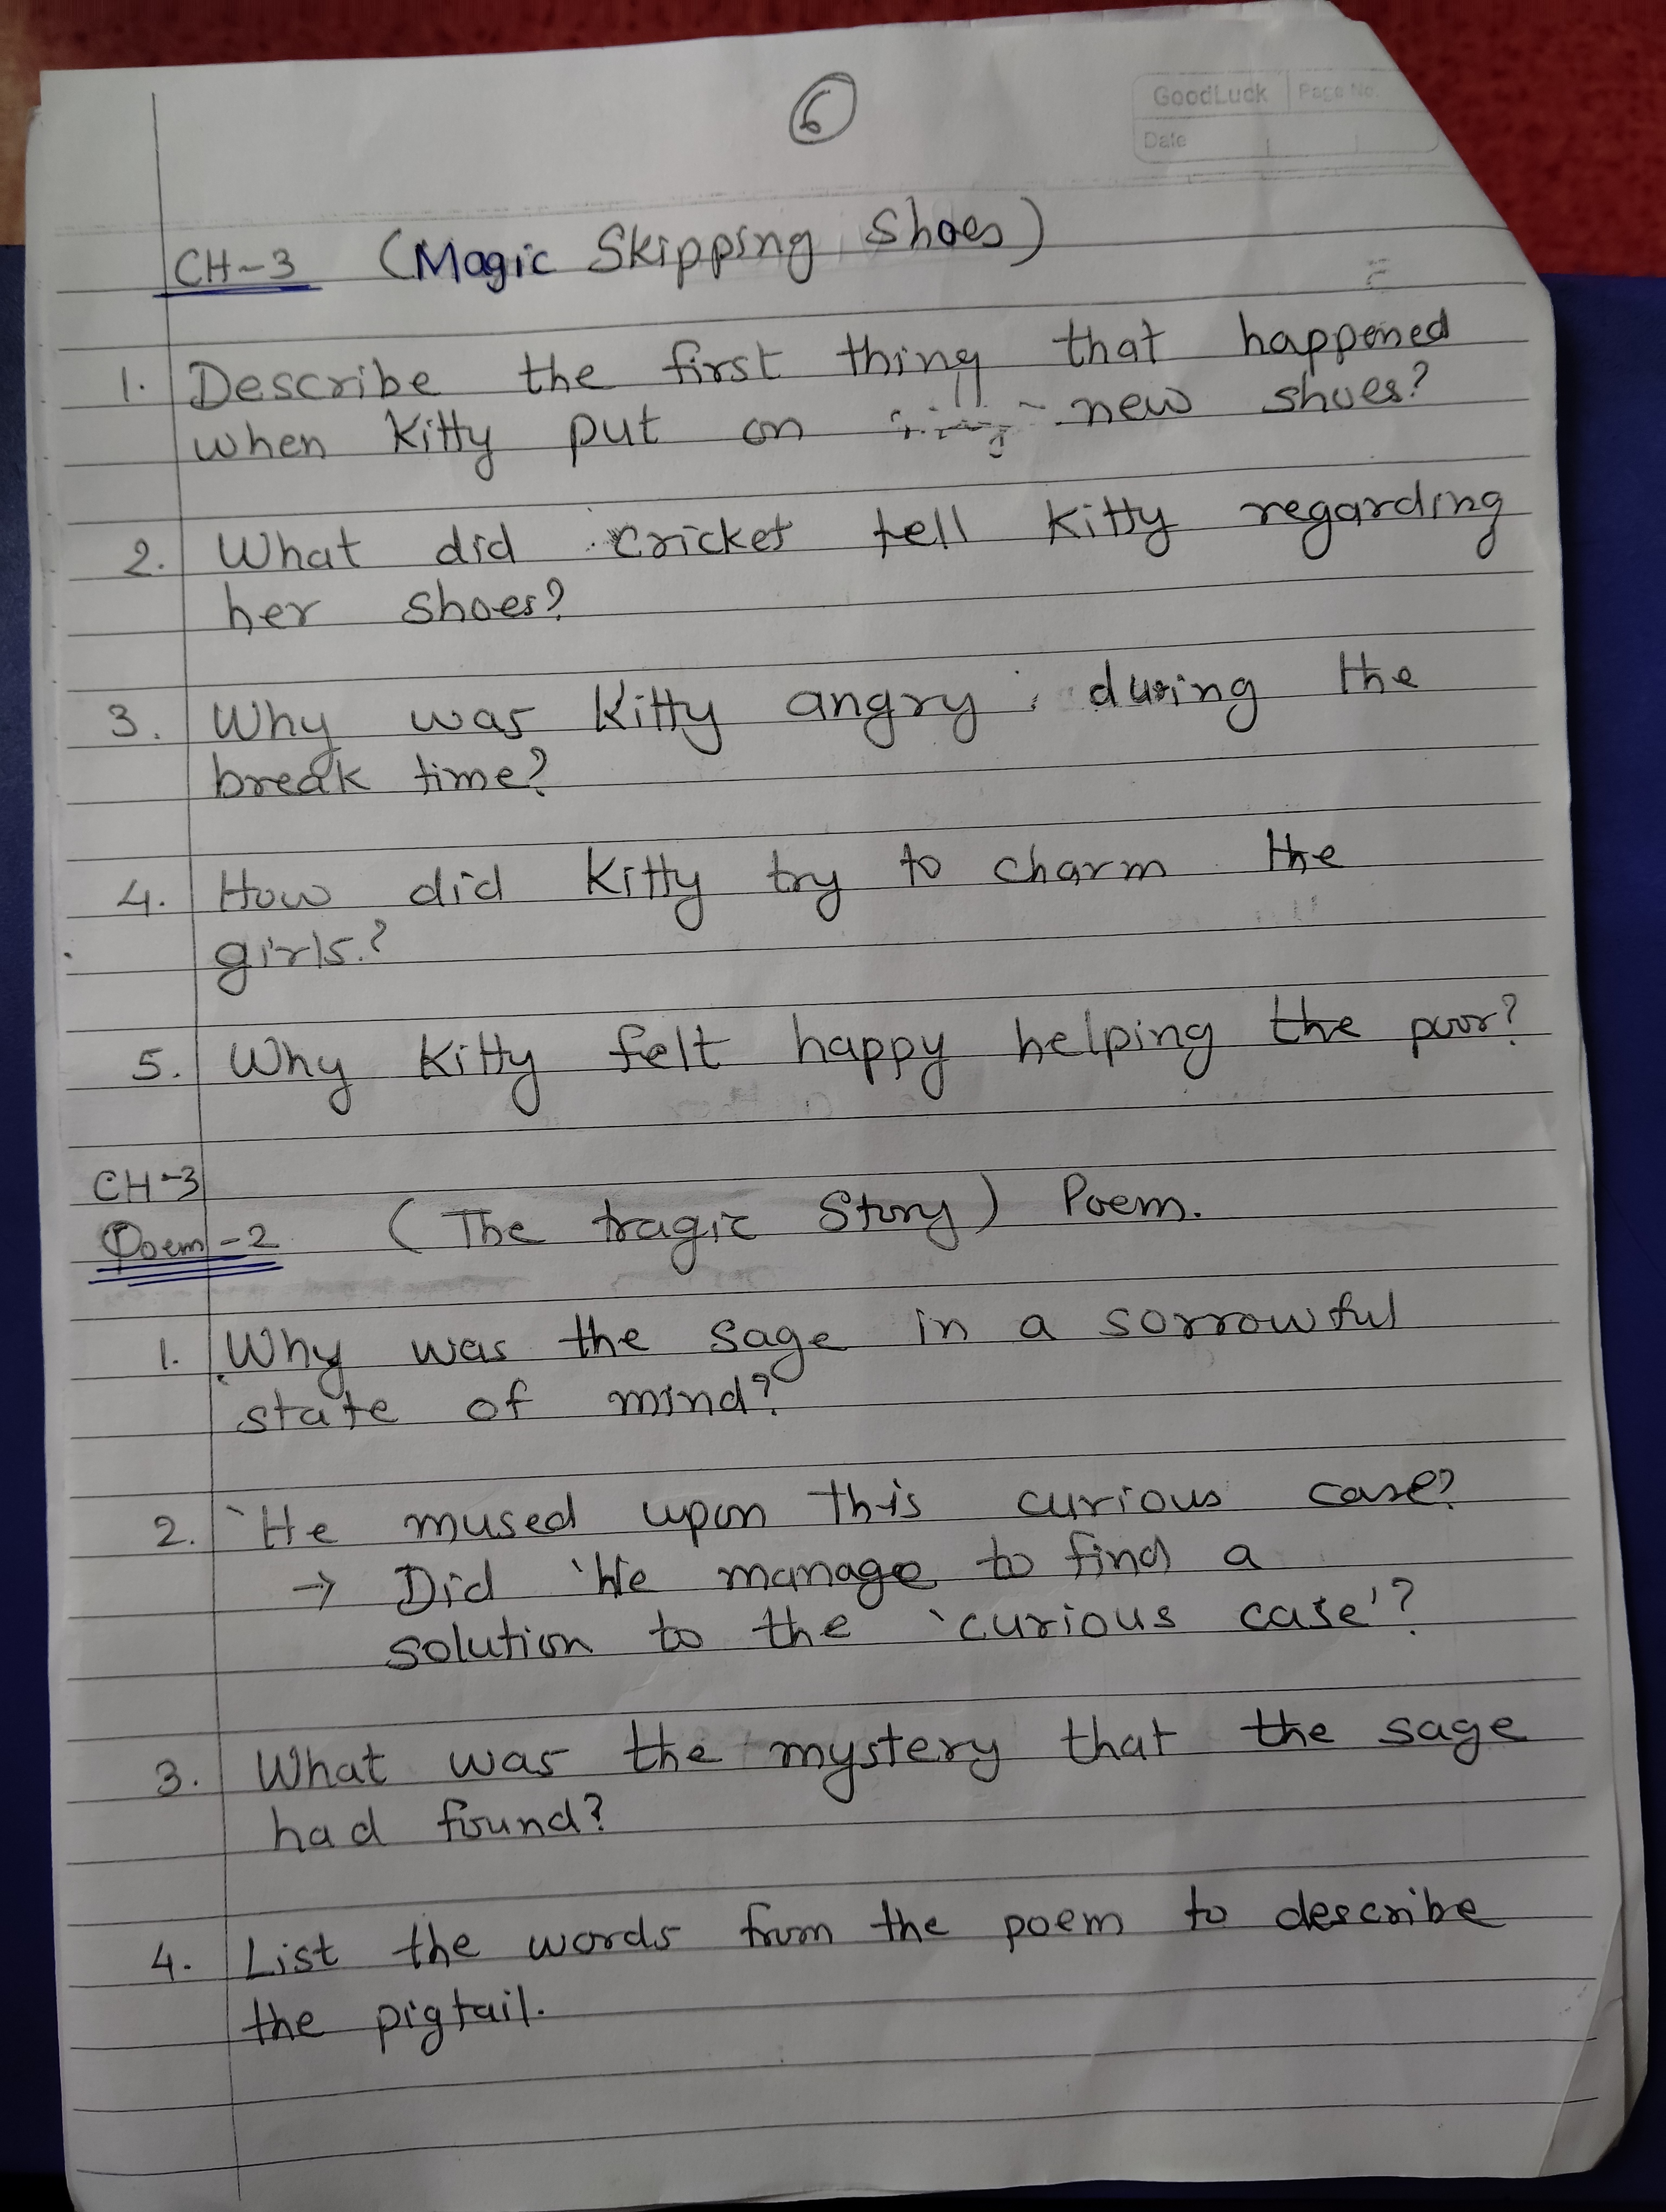 6
GoodLuck Page No.
Date
CH-3 (Magic Skipping Shoes)
1. Describe the first thing that happened
when Kitty put on new shoes?
2. What did cricket tell Kitty regarding
her shoes?
3. Why was Kitty angry during the
break time?
4. How did Kitty try to charm the
girls.?
5. Why Kitty felt happy helping the poor?
CH-3
Poem-2 (The tragic Story) Poem.
1. Why was the sage in a sorrowful
state of mind?
2. 'He mused upon this curious case?
→ Did 'He manage to find a
solution to the 'curious case'?
3. What was the mystery that the sage
had found?
4. List the words from the poem to describe
the pigtail.